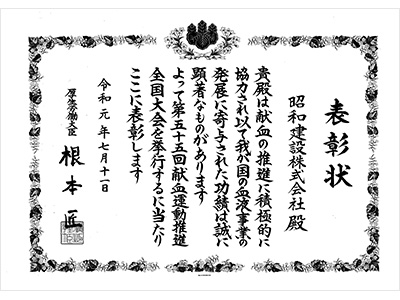 表彰状
昭和建設株式会社 殿
貴殿は献血の推進に積極的に
協力され以て我が国の血液事業の
発展に寄与された功績は誠に
顕著なものがあります
よって第五十五回献血運動推進
全国大会を挙行するに当たり
ここに表彰します
令和元年七月十一日
厚生労働大臣
根本匠